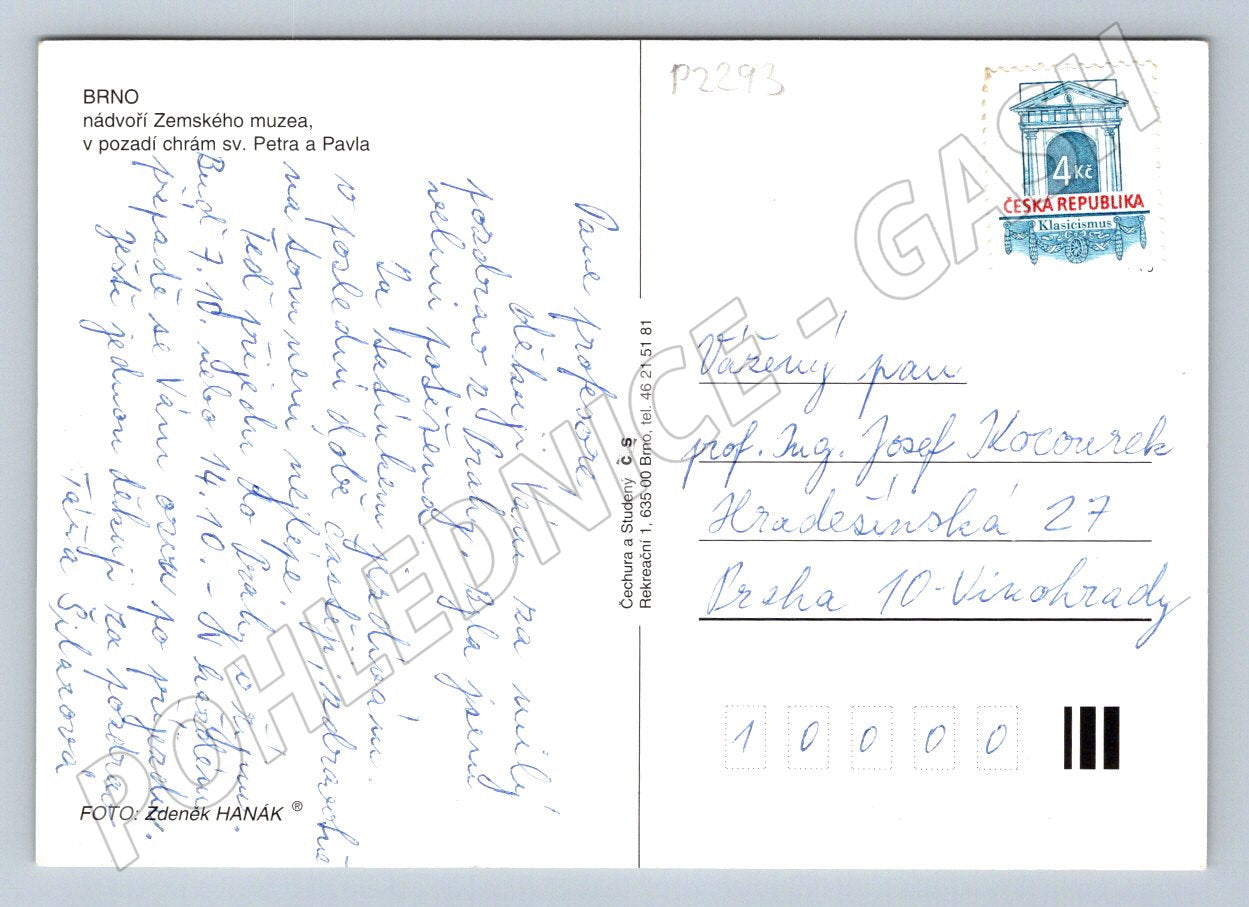 BRNO
nádvoří Zemského muzea,
v pozadí chrám sv. Petra a Pavla
Pane profesore,
děkuji Vám za milý
pozdrav z Prahy. Byla jsem
velmi potěšená.
Za tatínkem jezdívám
v poslední době častěji, zdravotně
na tom není nejlépe.
Teď přijedu do Prahy v říjnu.
Buď 7.10. nebo 14.10. - V každém
případě se Vám ozvu po příjezdu.
Ještě jednou děkuji za pozdrav
Táňa Šilarová
FOTO: Zdeněk HANÁK ®
Čechura a Studený Č S
Rekreační 1, 635 00 Brno, tel. 46 21 51 81
P2293
4 Kč
ČESKA REPUBLIKA
Klasicismus
Vážený pan
prof. Ing. Josef Kocourek
Hradešínská 27
Praha 10-Vinohrady
1 0 0 0 0
POHLEDNICE - GASH